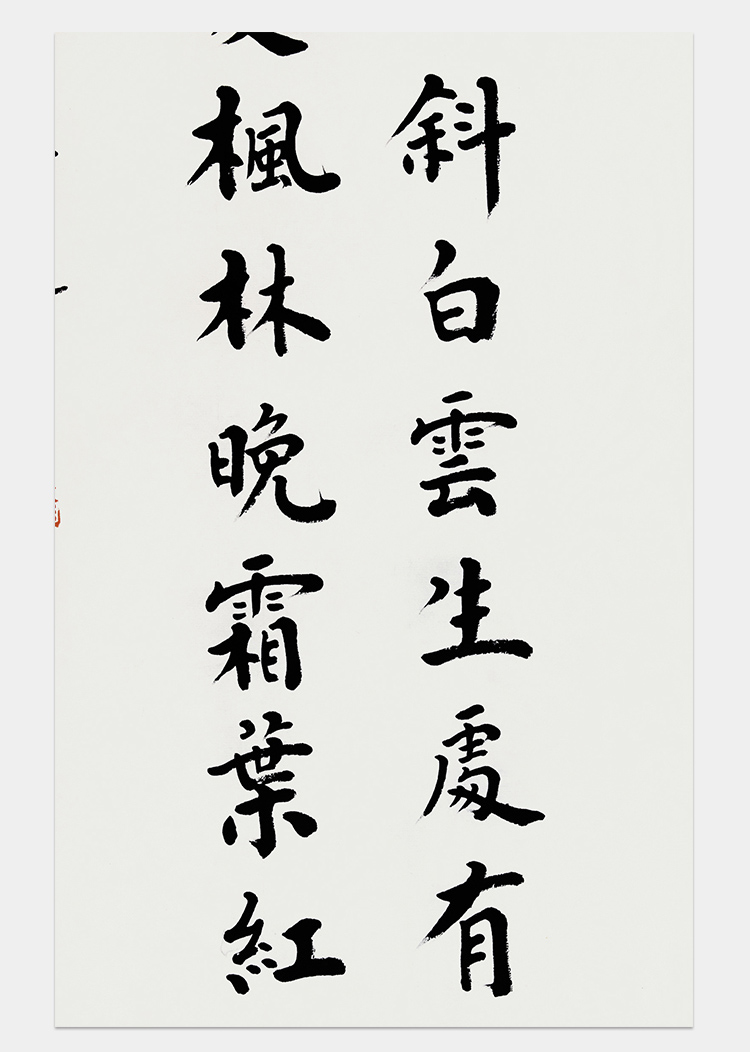 斜白雲生處有
楓林晚霜葉紅